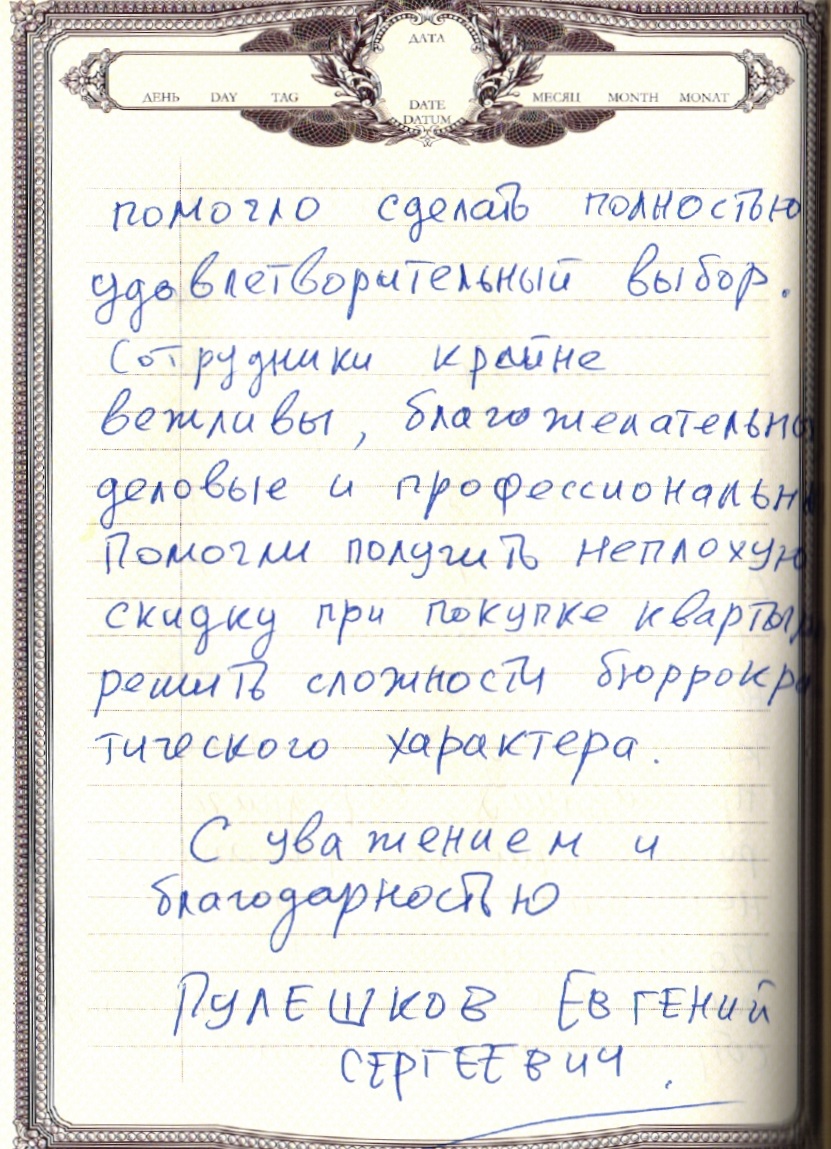 ДАТА
ДЕНЬ DAY TAG
МЕСЯЦ MONTH MONAT
DATE
DATUM
помогло сделать полностью
удовлетворительный выбор.
Сотрудники крайне
вежливы, благожелательны
деловые и профессиональны
Помогли получить неплохую
скидку при покупке квартыры
решить сложности бюррокра
тического характера.
С уважением и
благодарностью
ПУЛЕШКОВ ЕВГЕНИЙ
СЕРГЕЕВИЧ.